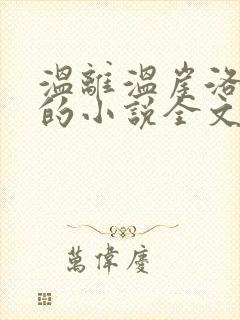 溫離溫崖洛
的小說全文
萬偉慶